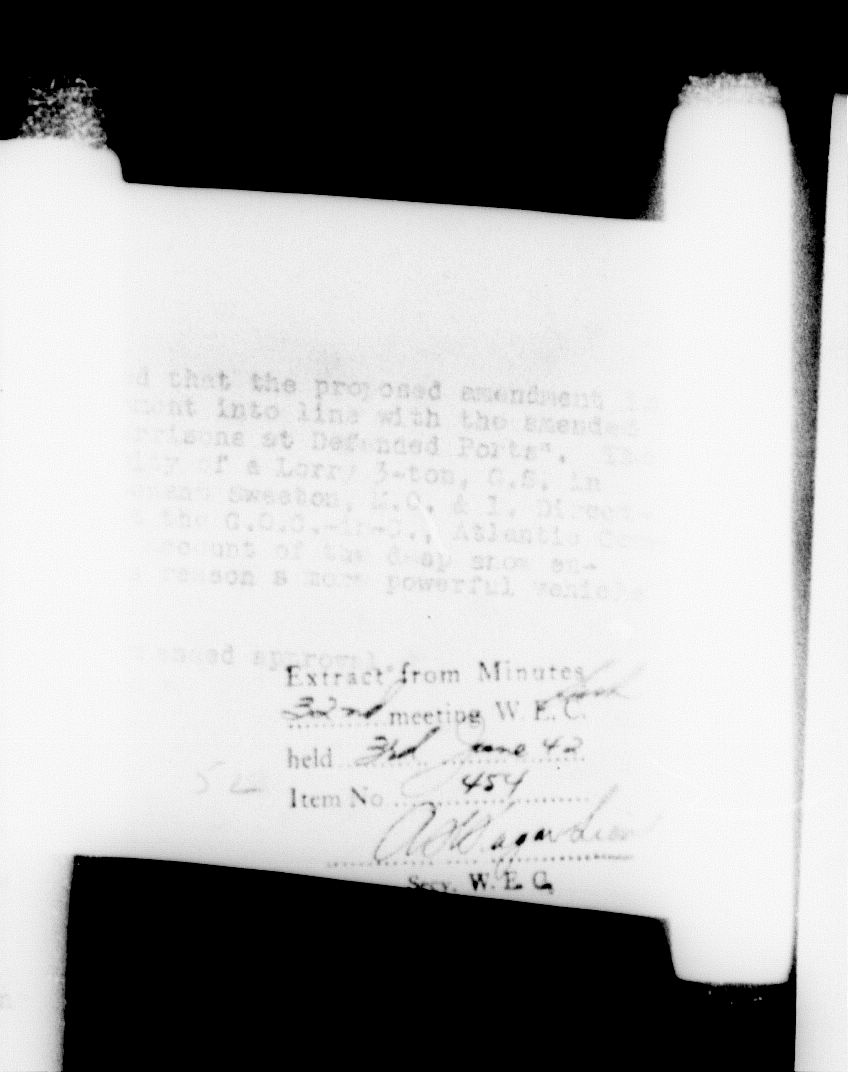 that the proposed amendment
into line with the amended
at Defended Ports". The
of a Lorry 3-ton, G.S. in
Sweeton, M.O. & I. Direct-
the G.O.C.-in-C., Atlantic Com-
account of the deep snow en-
reason a more powerful vehicle
approval.
Extract from Minutes
32nd meeting W. E. C.
held 3rd June 42
Item No 454
Secy. W. E. C.